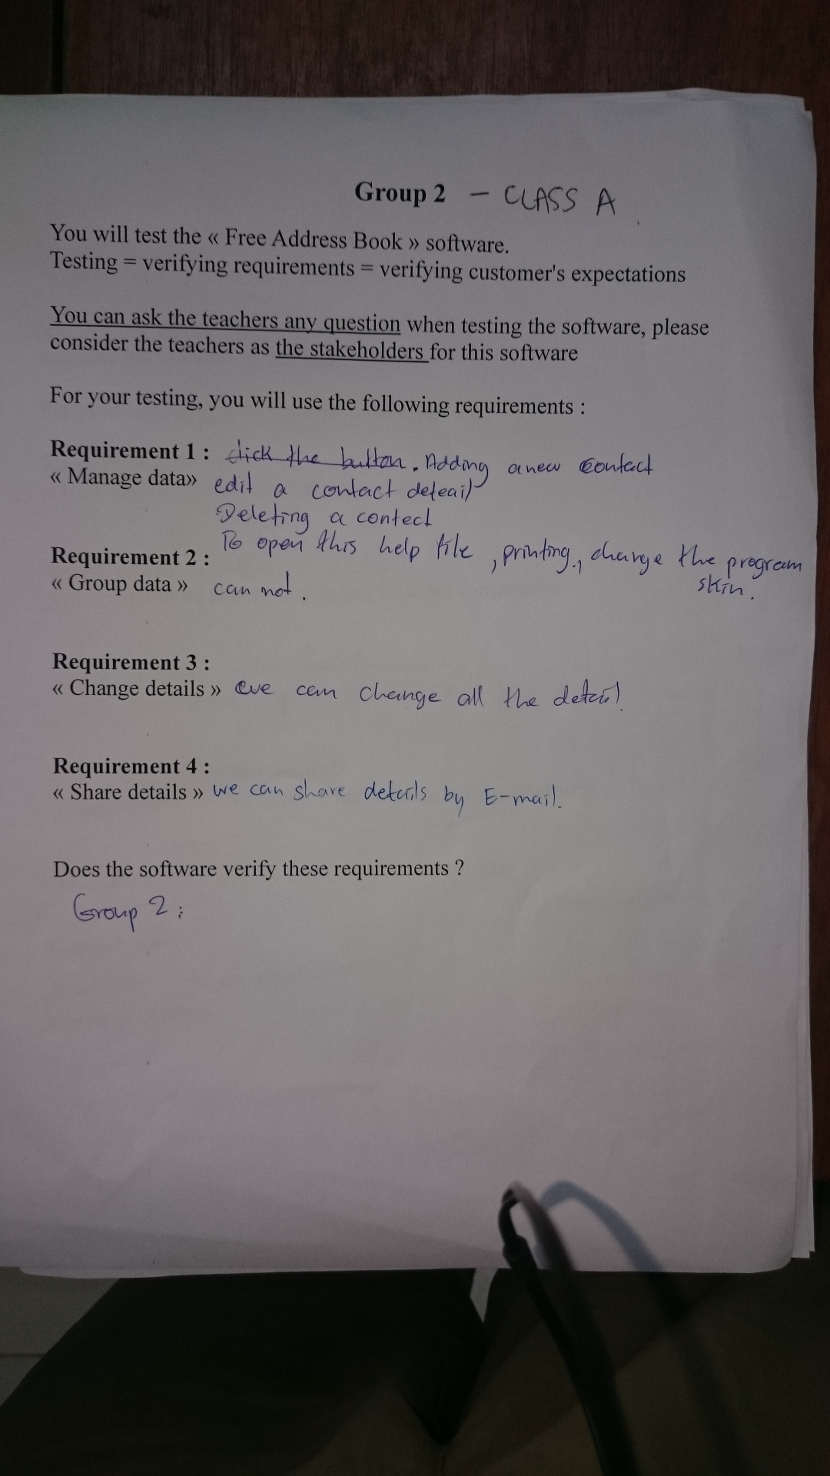 Group 2 - CLASS A
You will test the « Free Address Book » software.
Testing = verifying requirements = verifying customer's expectations
You can ask the teachers any question when testing the software, please
consider the teachers as the stakeholders for this software
For your testing, you will use the following requirements :
Requirement 1 : click the button. Adding a new contact
« Manage data» edit a contact deteail
Deleting a contect
To open this help file, printing, change the program
Requirement 2 :
skin.
« Group data » can not.
Requirement 3 :
« Change details » we can change all the detail.
Requirement 4 :
« Share details » we can share details by E-mail.
Does the software verify these requirements ?
Group 2 :